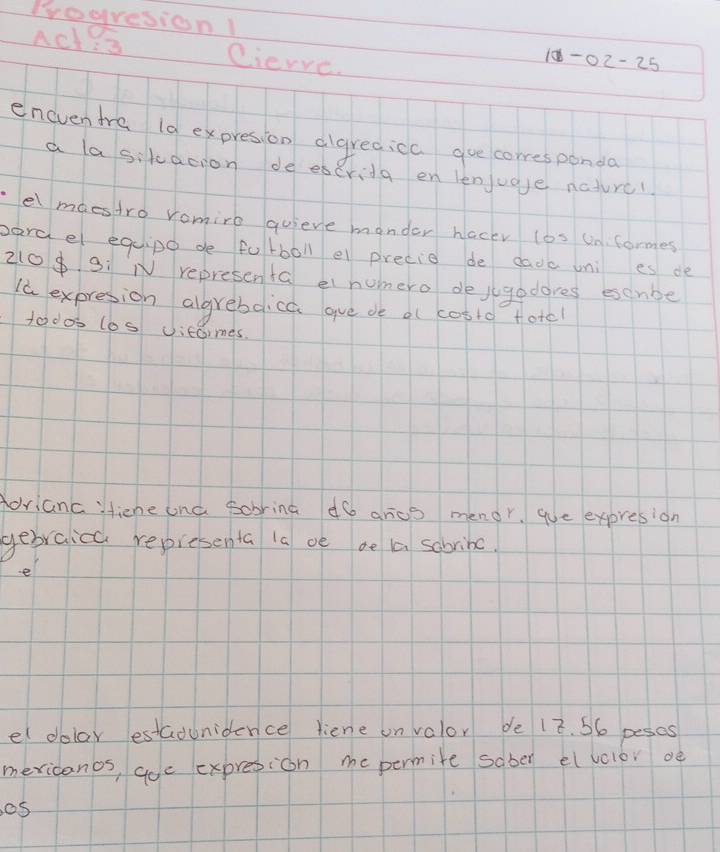 Progresion 1
Act: 3 Cierre. 10-02-25
encuentra la expresion algreaica que corresponda
a la situacion de escrita en lenjuaje natural.
• el maestro romiro quiere mandar hacer los uniformes
para el equipo de futboll el precio de cada uni es de
210 $. si N representa el numero de jugadores escribe
la expresion algrebaica que de al costo total
todos los
Adriana : tiene una sobrina d6 años menor. que expresion
gebraica representa la de de la sobrina.
e
el dolar estadunidence tiene un valor de 17.56 pesos
mexicanos, que expresion me permite saber el valor de
os